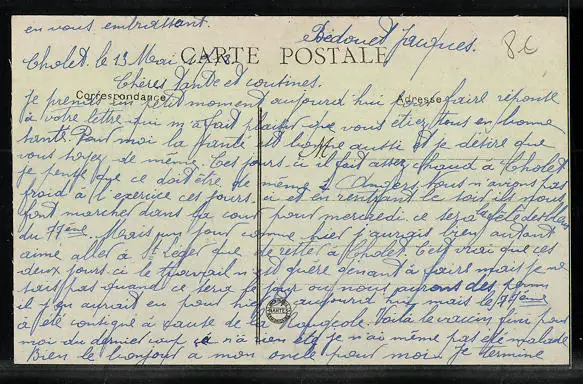 en vous embrassant.
Bédouet Jacques.
8€
Cholet. le 13 Mai
CARTE POSTALE
Chères Tante et cousines.
Correspondance
Adresse
Je prends un petit moment aujourd'hui pour faire réponse
à votre lettre qui m'a fait plaisir que vous étiez tous en bonne
santé. Pour moi la santé est bonne aussi et je désire que
vous soyez de même. Ces jours ci il fait assez chaud à Cholet
je pense que ce doit être de même à Angers. Nous n'avions pas
froid à l'exercice ces jours ci et en rentrant le soir ils nous
font marcher dans la cour pour mercredi. ce sera la fête des
du 77ème. Mais un jour comme hier j'aurais bien autant
aimé aller à St Léger que de rester à Cholet. C'est vrai que ces
deux jours ci le travail n'est guère gênant à faire mais je ne
sais pas quand ce sera le jour ou nous aurons des perms
il y en aurait eu pour hier aujourd'hui mais le 77ème
a été consigné à cause de la rougeole. Voila le vaccin fini pour
moi du dernier coup ça n'a rien été je n'ai même pas été malade
NANTES
Bien le bonjour à mon oncle pour moi. Je termine